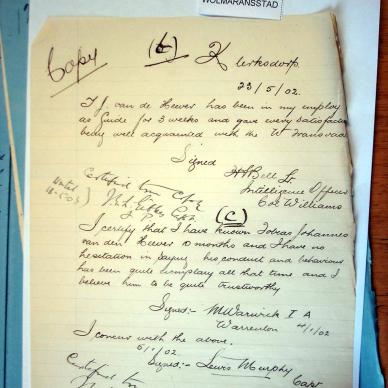 WOLMARANSSTAD
Copy
(b) Klerksdorp.
23/5/02.
T. J. van de Hewer has been in my employ
as Guide for 3 weeks and gave every satisfaction
being well acquainted with the W Transvaal
Signed
Bell Lt.
Intelligence Officer
Col Williams
Certified true Copy
J.P.
(C)
I certify that I have known Tobias Johannes
van den Hewer 10 months and I have no
hesitation in saying his conduct and behaviour
has been quite exemplary all that time and I
believe him to be quite trustworthy
Signed:- M Warwick I A
Warrenton 4/1/02
I concur with the above.
6/1/02. Signed:- Lewis Murphy
Capt
Certified true